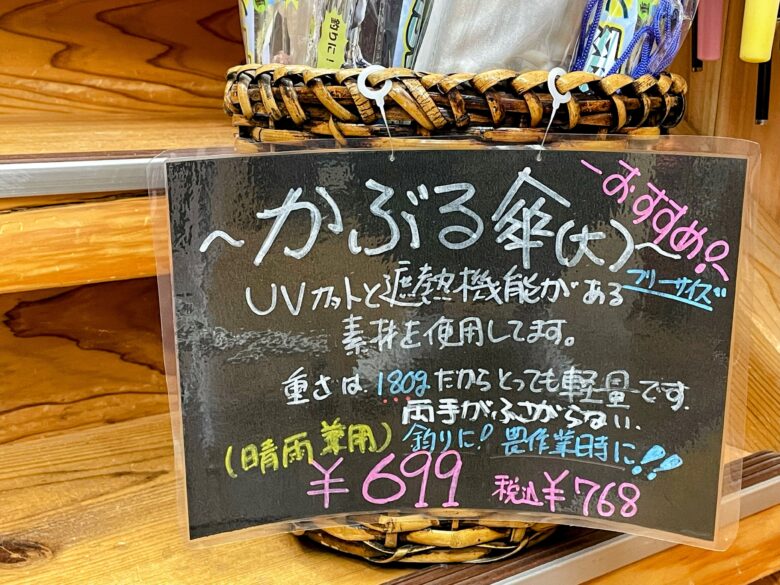 釣りに！
～かぶる傘(大)～
おすすめ♪
フリーサイズ
UVカットと遮熱機能がある
素材を使用してます。
重さは180gだからとっても軽量です。
両手がふさがらない。
(晴雨兼用) 釣りに！畏作業時に！！
¥699 税込¥768